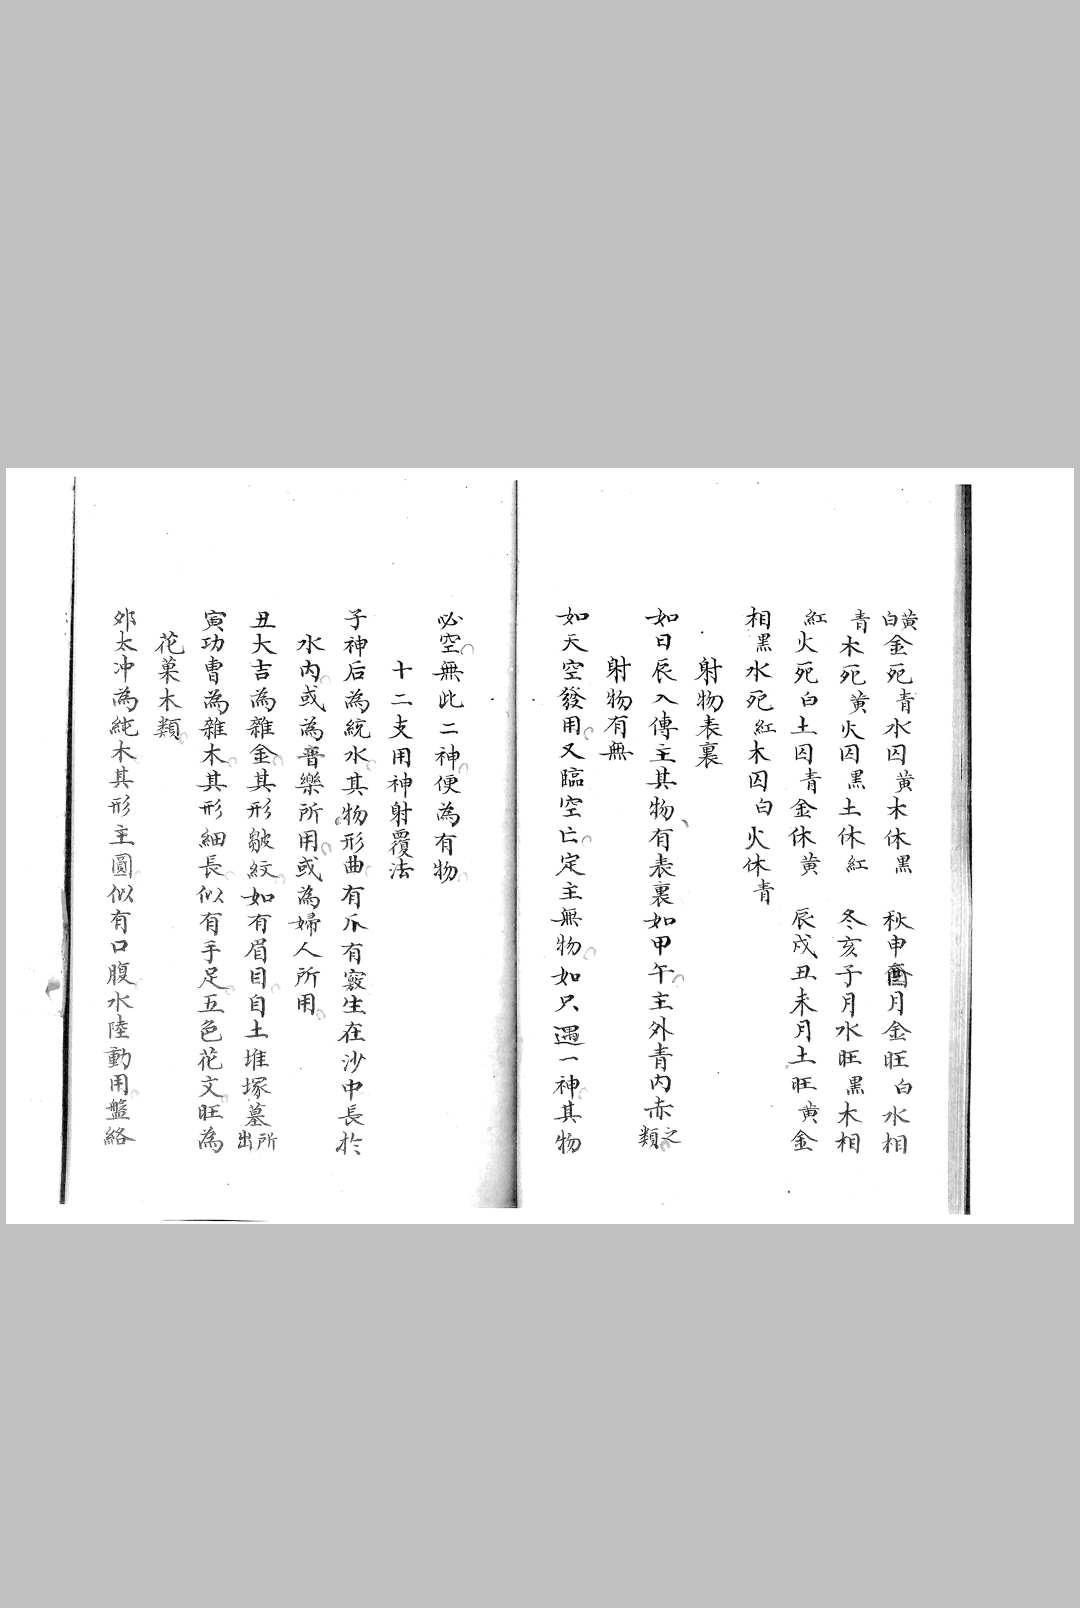 黄白金死青水囚黄木休黑　秋申酉月金旺白水相
青木死黄火囚黑土休紅　冬亥子月水旺黑木相
紅火死白土囚青金休黄　辰戌丑未月土旺黄金
相黑水死紅木囚白火休青
射物表裏
如日辰入傳主其物有表裏如甲午主外青内赤之類
射物有無
如天空發用又臨空亡定主無物如只遇一神其物
必空無此二神便為有物
十二支用神射覆法
子神后為統水其物形曲有爪有竅生在沙中長於
水内或為音樂所用或為婦人所用
丑大吉為雜金其形皺紋如有眉目自土堆塚墓所出
寅功曹為雜木其形細長似有手足五色花文旺為
花菓木類
夘太冲為純木其形主圓似有口腹水陸動用盤絡